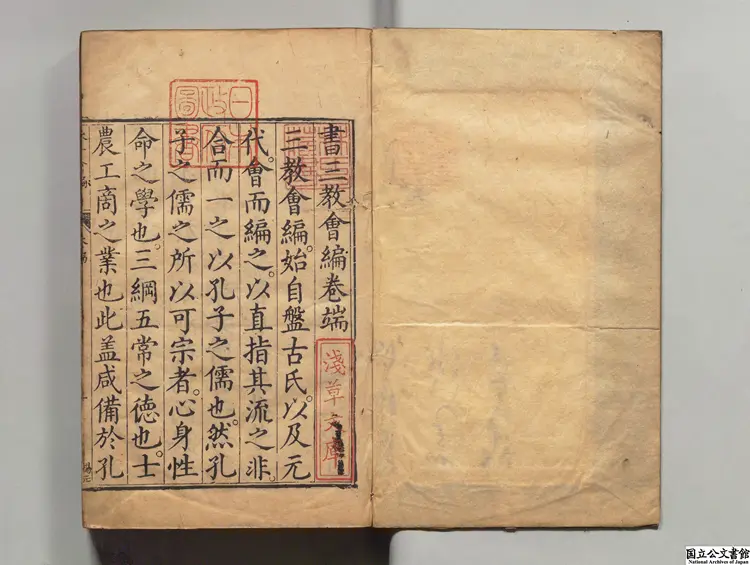 書三教會編卷端
三教會編。始自盤古氏。以及元
代。會而編之。以直指其流之非。
合而一之以孔子之儒也。然孔
子之儒之所以可宗者。心身性
命之學也。三綱五常之德也。士
農工商之業也此盖咸備於孔
淺草文庫
日本
政府
圖書
国立公文書館
National Archives of Japan